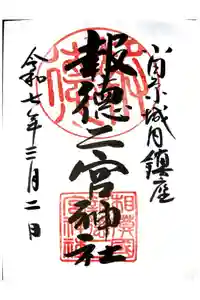 小田原城内鎮座
報徳二宮神社
令和七年三月二日